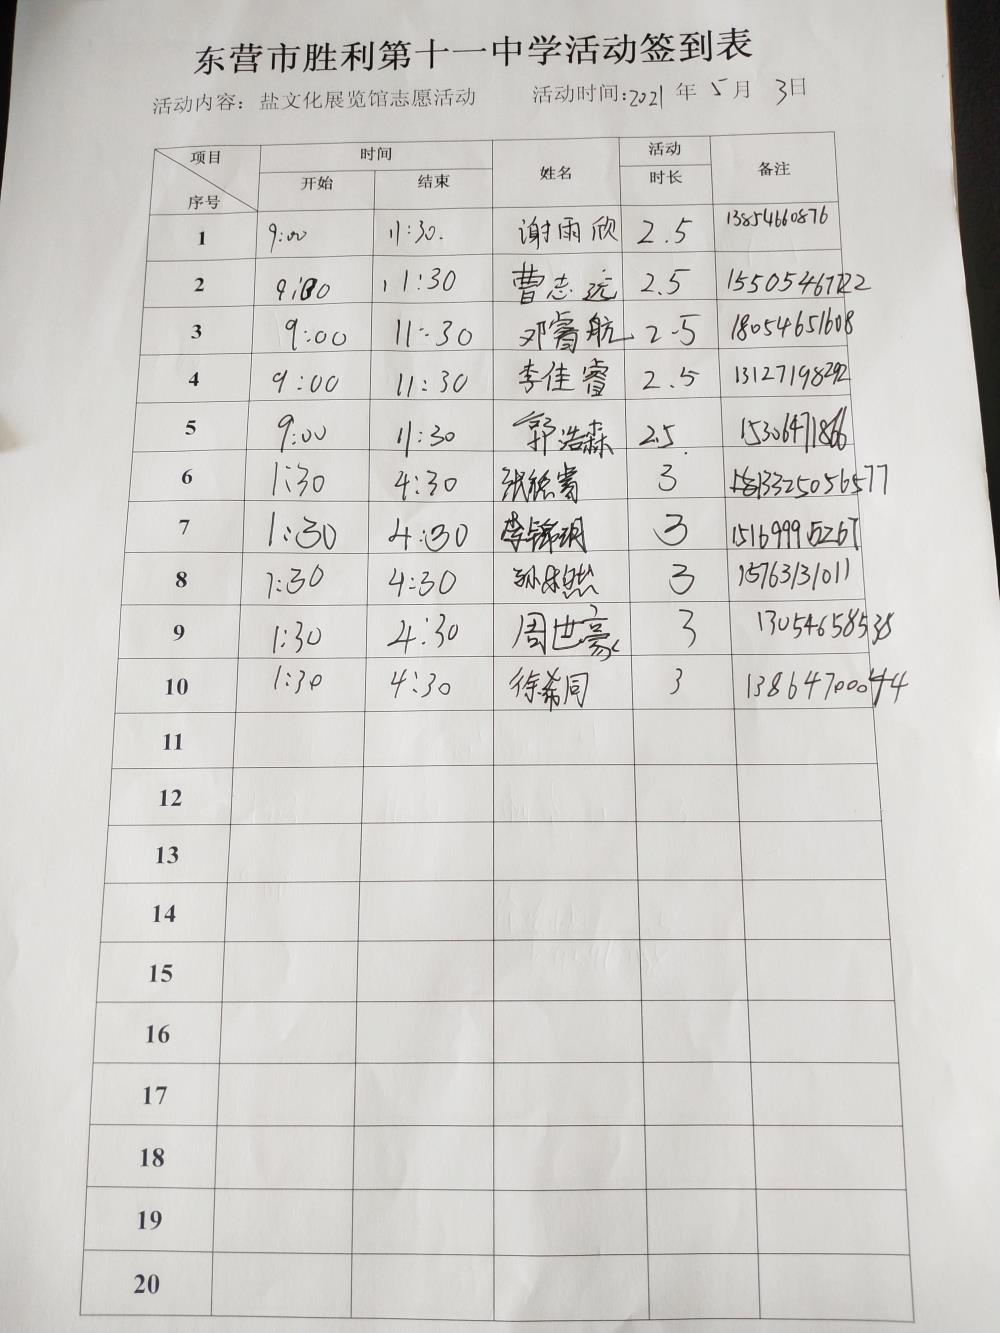 东营市胜利第十一中学活动签到表
活动内容：盐文化展览馆志愿活动 活动时间:2021 年 5 月 3日
项目 时间 姓名 活动 备注
序号 开始 结束 时长
1 9:00 11:30. 谢雨欣 2.5 13854660876
2 9:00 11:30 曹志远 2.5
3 9:00 11:30 邓睿航 2.5 18054651608
4 9:00 11:30 李佳睿 2.5 13127198292
5 9:00 11:30 郭浩森 2.5 15306471866
6 1:30 4:30 3 13325056577
7 1:30 4:30 李锦玥 3 15169995267
8 1:30 4:30 3 15763131011
9 1:30 4:30 周世豪 3 13054658538
10 1:30 4:30 徐希同 3 13864700044
11
12
13
14
15
16
17
18
19
20